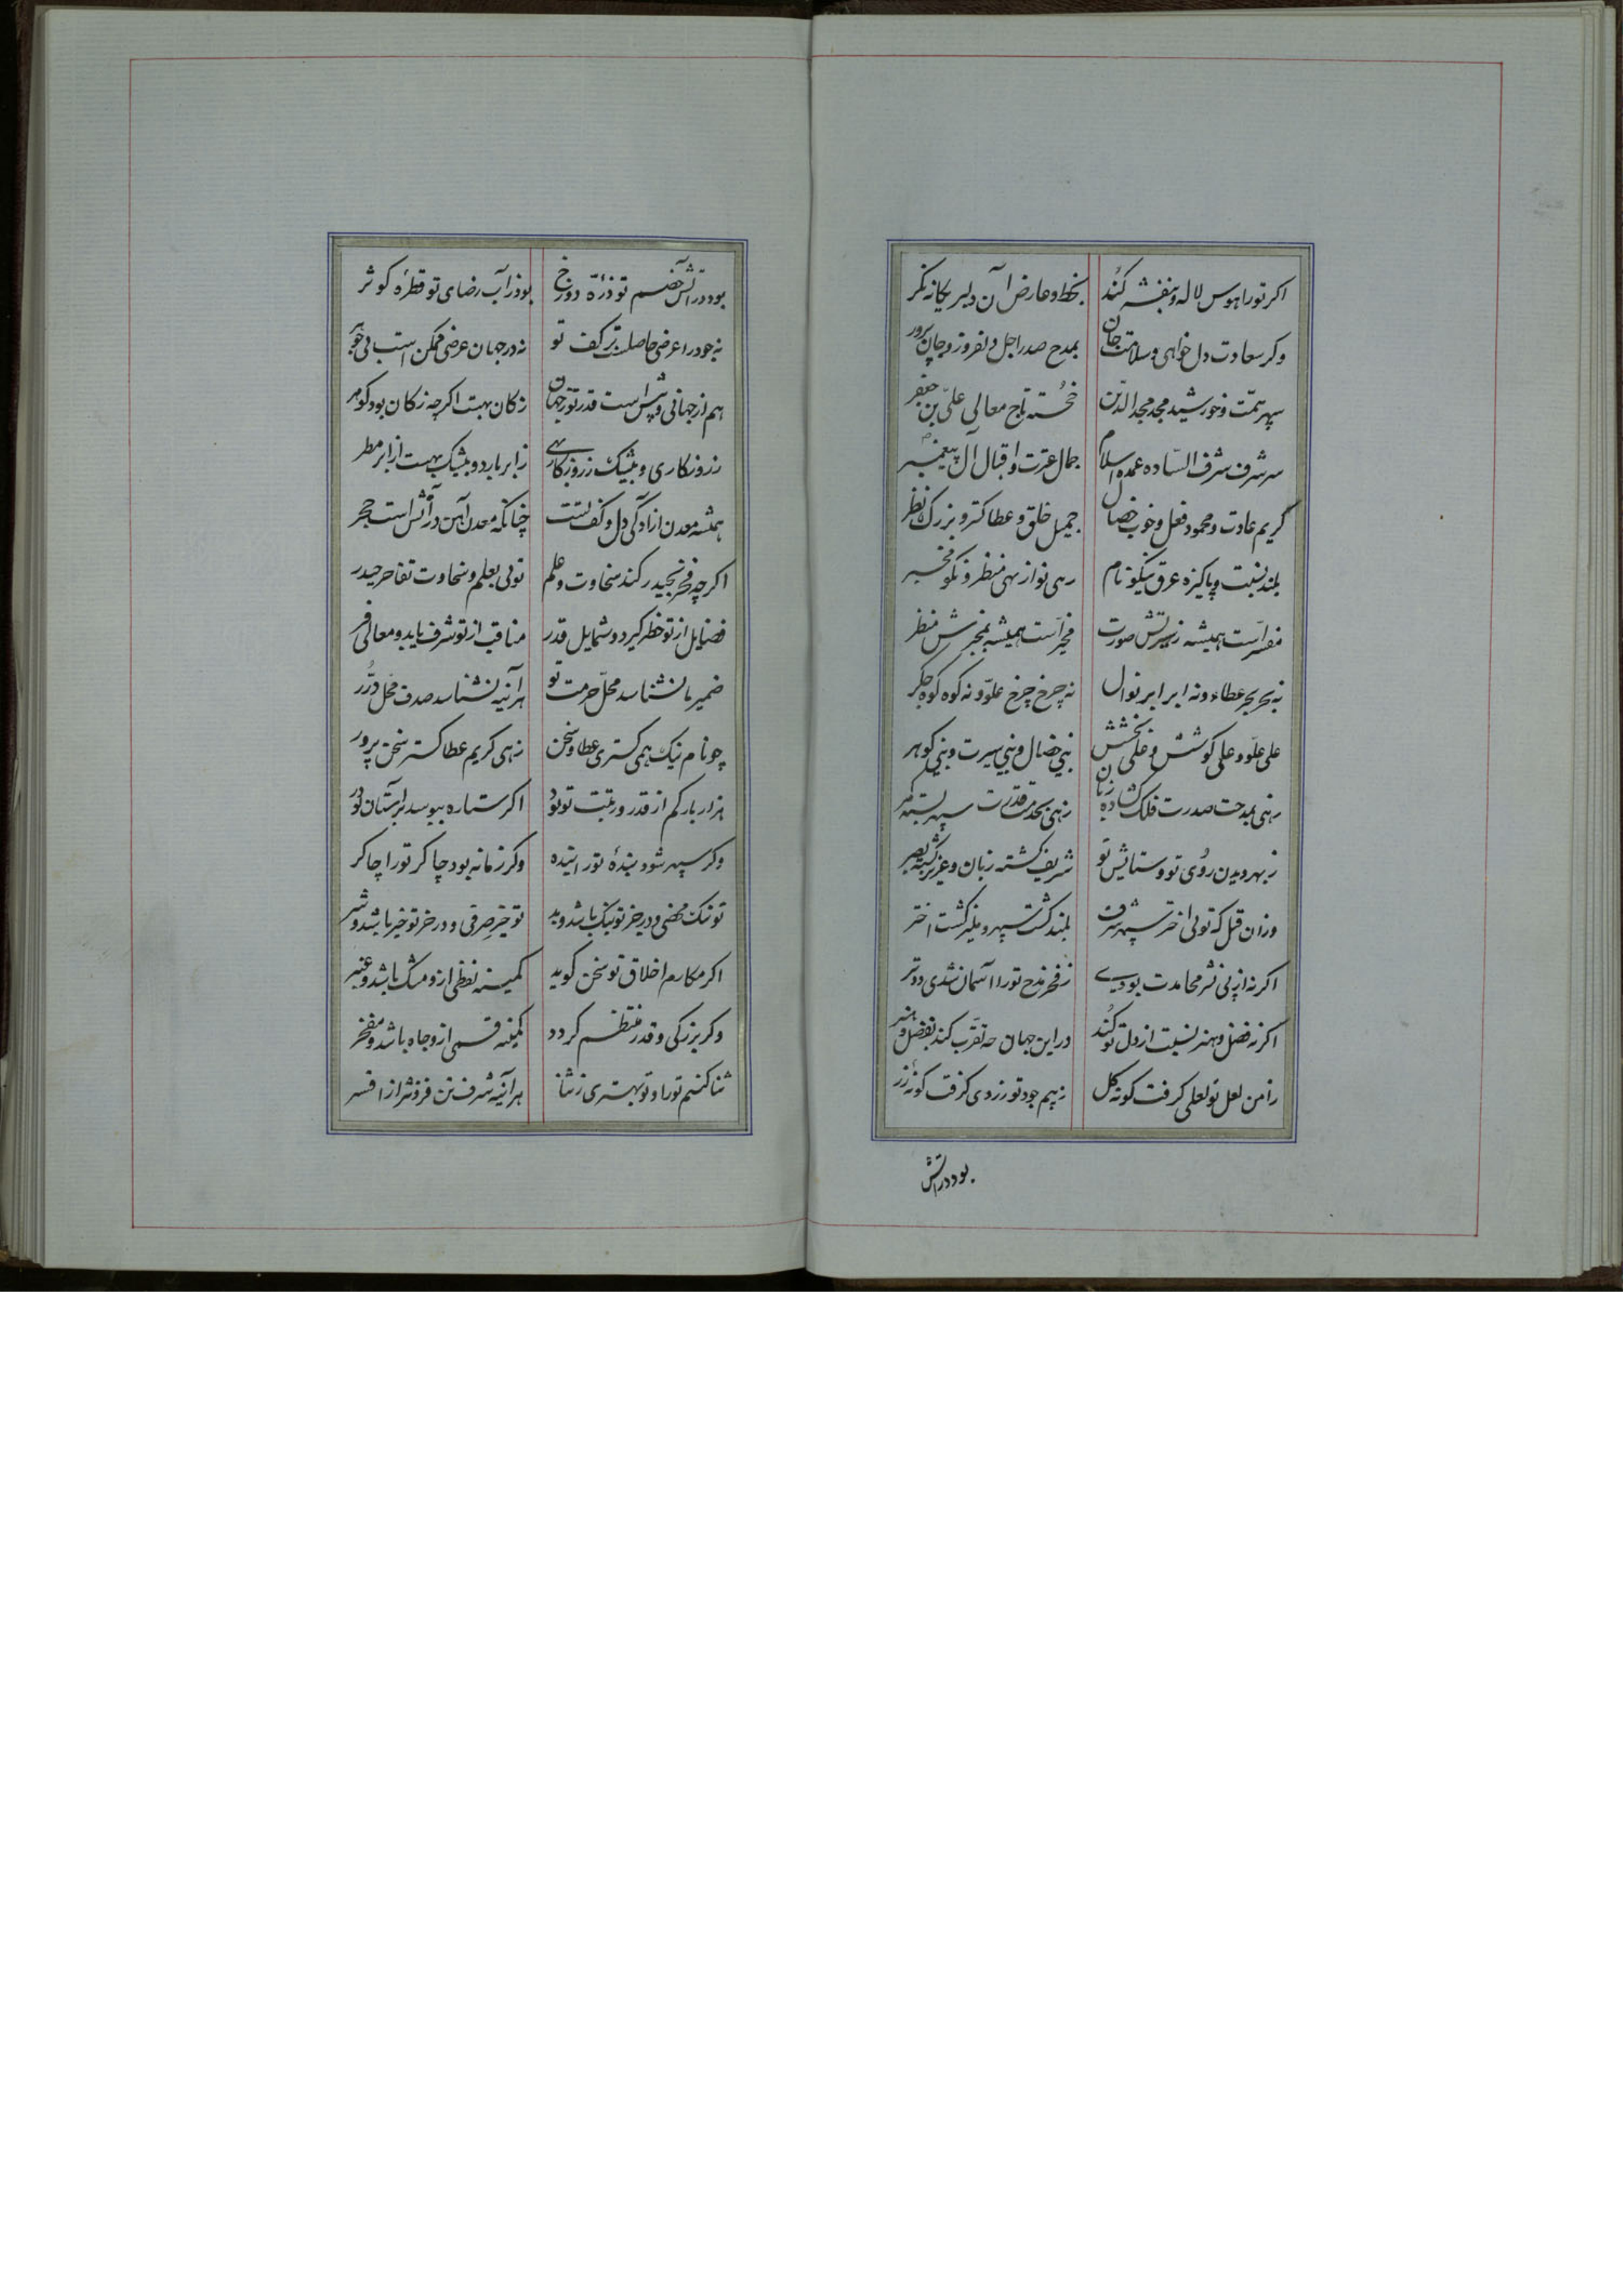 اکر تو را هوس لاله و بنفشه کُند بخط و عارض آن دلبر یکانه نکر
وکر سعادت دل خواهی و سلامت جان بمدح صدر اجل دلفروز و جان پرور
سپهر همّت و خورشید مجد مجد الدّین خجُسته تاج معالی علیّ بن جعفر
سر شرف شرف السّاده عمدة اسلام جمال عترت و اقبال آل پیغمبر
کریم عادت و محمود فعل و خوب خصال جمیل خلق و عطا کستر و بزرک نظر
بلند نسبت و پاکیزه عرق و نیکو نام رهی نواز بهی منظر و نکو مخبر
مفسر است همیشه ز سیرتش صورت مخبر است همیشه بمخبرش منظر
نه بحر بحر عطاء و نه ابر ابر نوال نه چرخ چرخ علوّ و نه کوه کوه جکر
علی علّو و علی کوشش و علی بخشش نبی خصال و نبی سیرت و نبی کوهر
زهی بمدحت صدرت فلک کشاده زبان زهی بخدمت قدرت سپهر بسته کمر
ز بهر دیدن رُوی تو و ستایش تو شریف کشته زبان و عزیز کشته بصر
وزان قبل که توئی اختر سپهر شرف بلند کشت سپهر و منیر کشت اختر
اکر نه از پی نشر محامدت بودی ز فخر مدح تو را آسمان شدی دفتر
اکر نه فضل و هنر نسبت از دل تو کُند در این جهان که تقرّب کند بفضل و هنر
ز امن لعل تو لعلی کرفت کونه کل ز بیم جود تو زردی کرفت کونهٔ زر
بود در آتش
بود در آتش خصم تو ذرّهٔ دوزخ بود ز آب رضای تو قطرهٔ کوثر
نه جود را عرضی حاصلست بر کف تو نه در جهان عرضی ممکن است بی جوهر
هم از جهانی و بیش است قدرت تو ز جهان ز کان بهست اکر چه ز کان بود کوهر
ز روزکاری و بیشک ز روزکار بهی ز ابر بارد و بیشک بهست از ابر مطر
همیشه معدن آزادکی دل و کف تست چنانکه معدن آهن در آتش است حجر
اکر چه فخر بحیدر کند سخاوت و علم توئی بعلم و سخاوت تفاخر حیدر
فضایل از تو خطر کیرد و شمایل قدر مناقب از تو شرف یابد و معالی فر
ضمیر ما نشناسد محلّ حرمت تو هر آینه نشناسد صدف محل دُرَر
چو نام نیک همی کستری عطا و سخن زهی کریم عطا کستر سخن پرور
هزار بار کم از قدر و رتبت تو بود اکر ستاره ببوسد بر آستان تو در
وکر سپهر شود بندهٔ تو را بنده وکر زمانه بود چاکر تو را چاکر
تو نیک محضی و در جز تو نیک باشد و بد تو خیر صرفی و در جز تو خیر باشد و شر
اکر مکارم اخلاق تو سخن کوید کمینه لفظی ازو مشک باشد و عنبر
وکر بزرکی و قدر منتظم کردد کمینه قسمی ازو جاه باشد و مفخر
ثنا کنم تو را و تو بهتری ز ثنا هر آینه شرف تن فزونتر از افسر